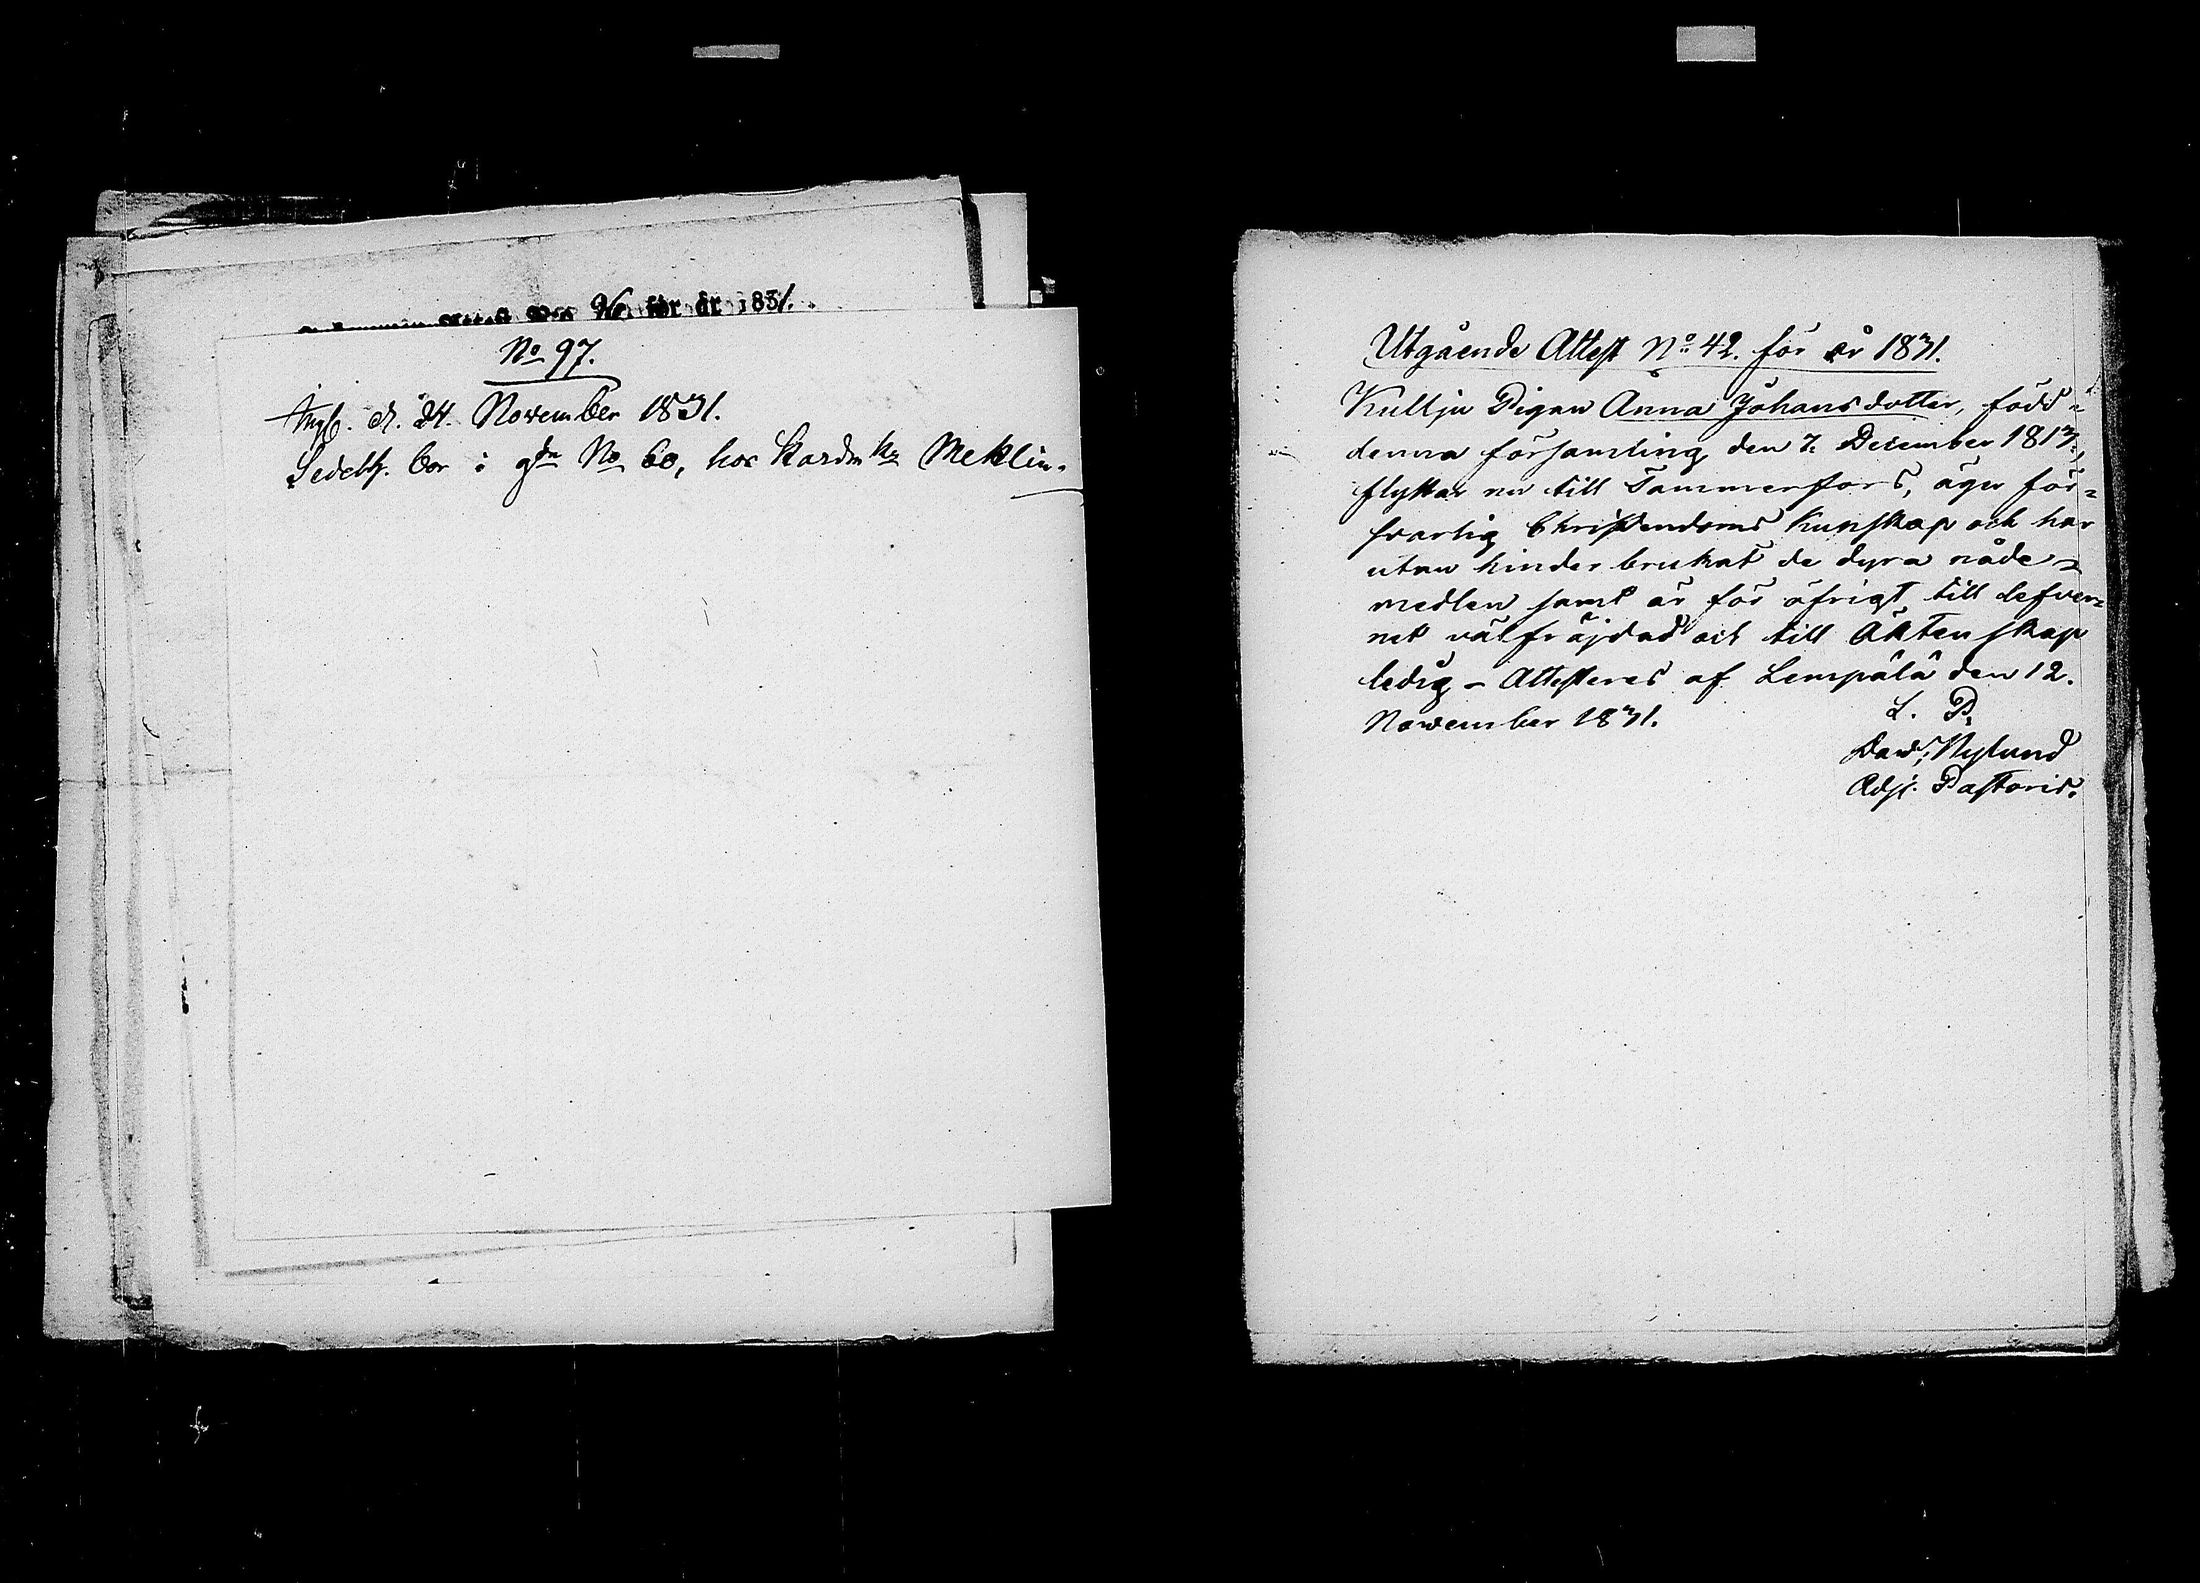 för år 1831.
No 97.
d. 24. November 1831.
bor i gdn No 60, hos Meklin.
Utgående Attest No 42. för år 1831.
Kullju Pigan Anna Johansdotter, född =
denna församling den 7. December 1813.,
flyttar nu till Tammerfors, äger för=
svarlig Christendoms Kunskap och har
utan hinder brukat de dyra nåde=
medlen samt är för öfrigt till lefver=
net välfräjdad och till Äktenskap
ledig – Attesteras af Lempälä den 12.
November 1831.
L. P.
Dav. Nylund
Adj. Pastoris.